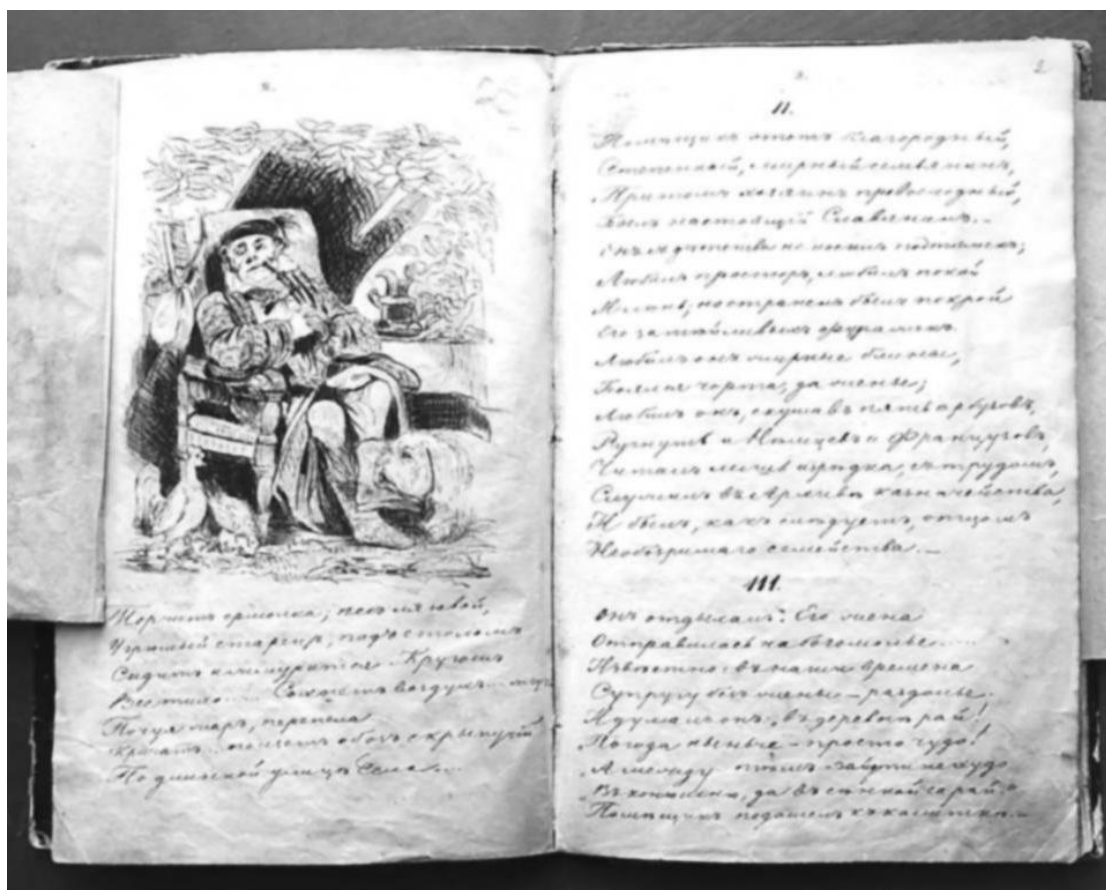 Торчитъ ермолка; песъ лихой,
Угрюмый старецъ, подъ столомъ
Сидитъ и жмурится. Кругомъ
Все тихо.... Сохнетъ воздухъ...
Почуя жаръ, перепела
Кричатъ... ползетъ обозъ скрыпучій
По длинной улицѣ села....
2
II.
Помѣщикъ этотъ благородный,
Степенный, мирный семьянинъ,
Притомъ хозяинъ превосходный,
Былъ настоящій Славянинъ...
Онъ съ дѣтства не носилъ подтяжекъ;
Любилъ просторъ, любилъ покой
И лѣнь; но страненъ былъ покрой
Его затѣйливыхъ фуражекъ.
Любилъ онъ жирные блины,
Боялся чорта, да жены;
Любилъ онъ, скушавъ пять арбузовъ,
Ругнуть и Нѣмцевъ и Французовъ,
Читалъ лишь изрѣдка, съ трудомъ,
Служилъ въ Архивѣ казначейства,
И былъ, какъ слѣдуетъ, отцомъ
Необозримаго семейства.—
III.
Онъ отдыхалъ. Его жена
Отправилась на богомолье....
Извѣстно: въ наши времена
Супругу безъ жены — раздолье.
И думалъ онъ: „въ деревнѣ рай!
Погода нынче — просто чудо!
„А между тѣмъ зайти не худо
„Въ конюшню, да въ сарай."
Помѣщикъ подошелъ къ калиткѣ.—